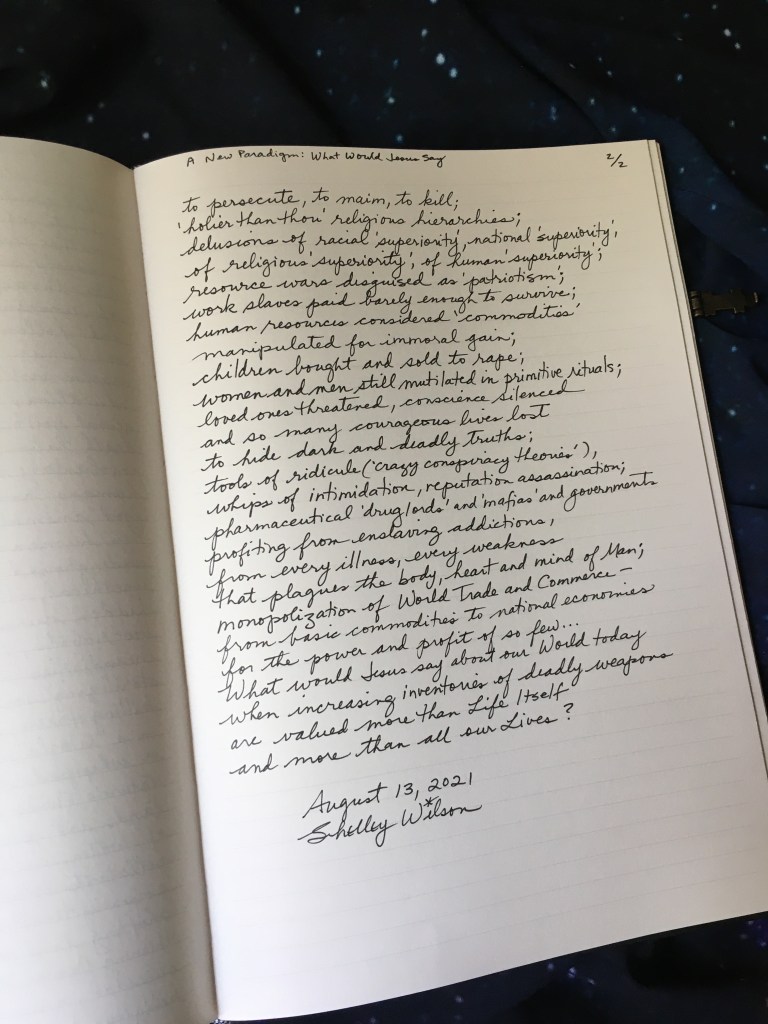 A New Paradigm: What Would Jesus Say
2/2
to persecute, to maim, to kill;
'holier than thou' religious hierarchies;
delusions of racial 'superiority', national 'superiority',
of religious 'superiority', of human 'superiority';
resource wars disguised as 'patriotism';
work slaves paid barely enough to survive;
human resources considered 'commodities'
manipulated for immoral gain;
children bought and sold to rape;
women and men still mutilated in primitive rituals;
loved ones threatened, conscience silenced
and so many courageous lives lost
to hide dark and deadly truths;
tools of ridicule ('crazy conspiracy theories'),
whips of intimidation, reputation assassination;
pharmaceutical 'drug lords' and 'mafias' and governments
profiting from enslaving addictions,
from every illness, every weakness
that plagues the body, heart and mind of Man;
monopolization of World Trade and Commerce –
from basic commodities to national economies
for the power and profit of so few...
What would Jesus say about our World today
when increasing inventories of deadly weapons
are valued more than Life Itself
and more than all our Lives?
August 13, 2021
Shelley Wilson